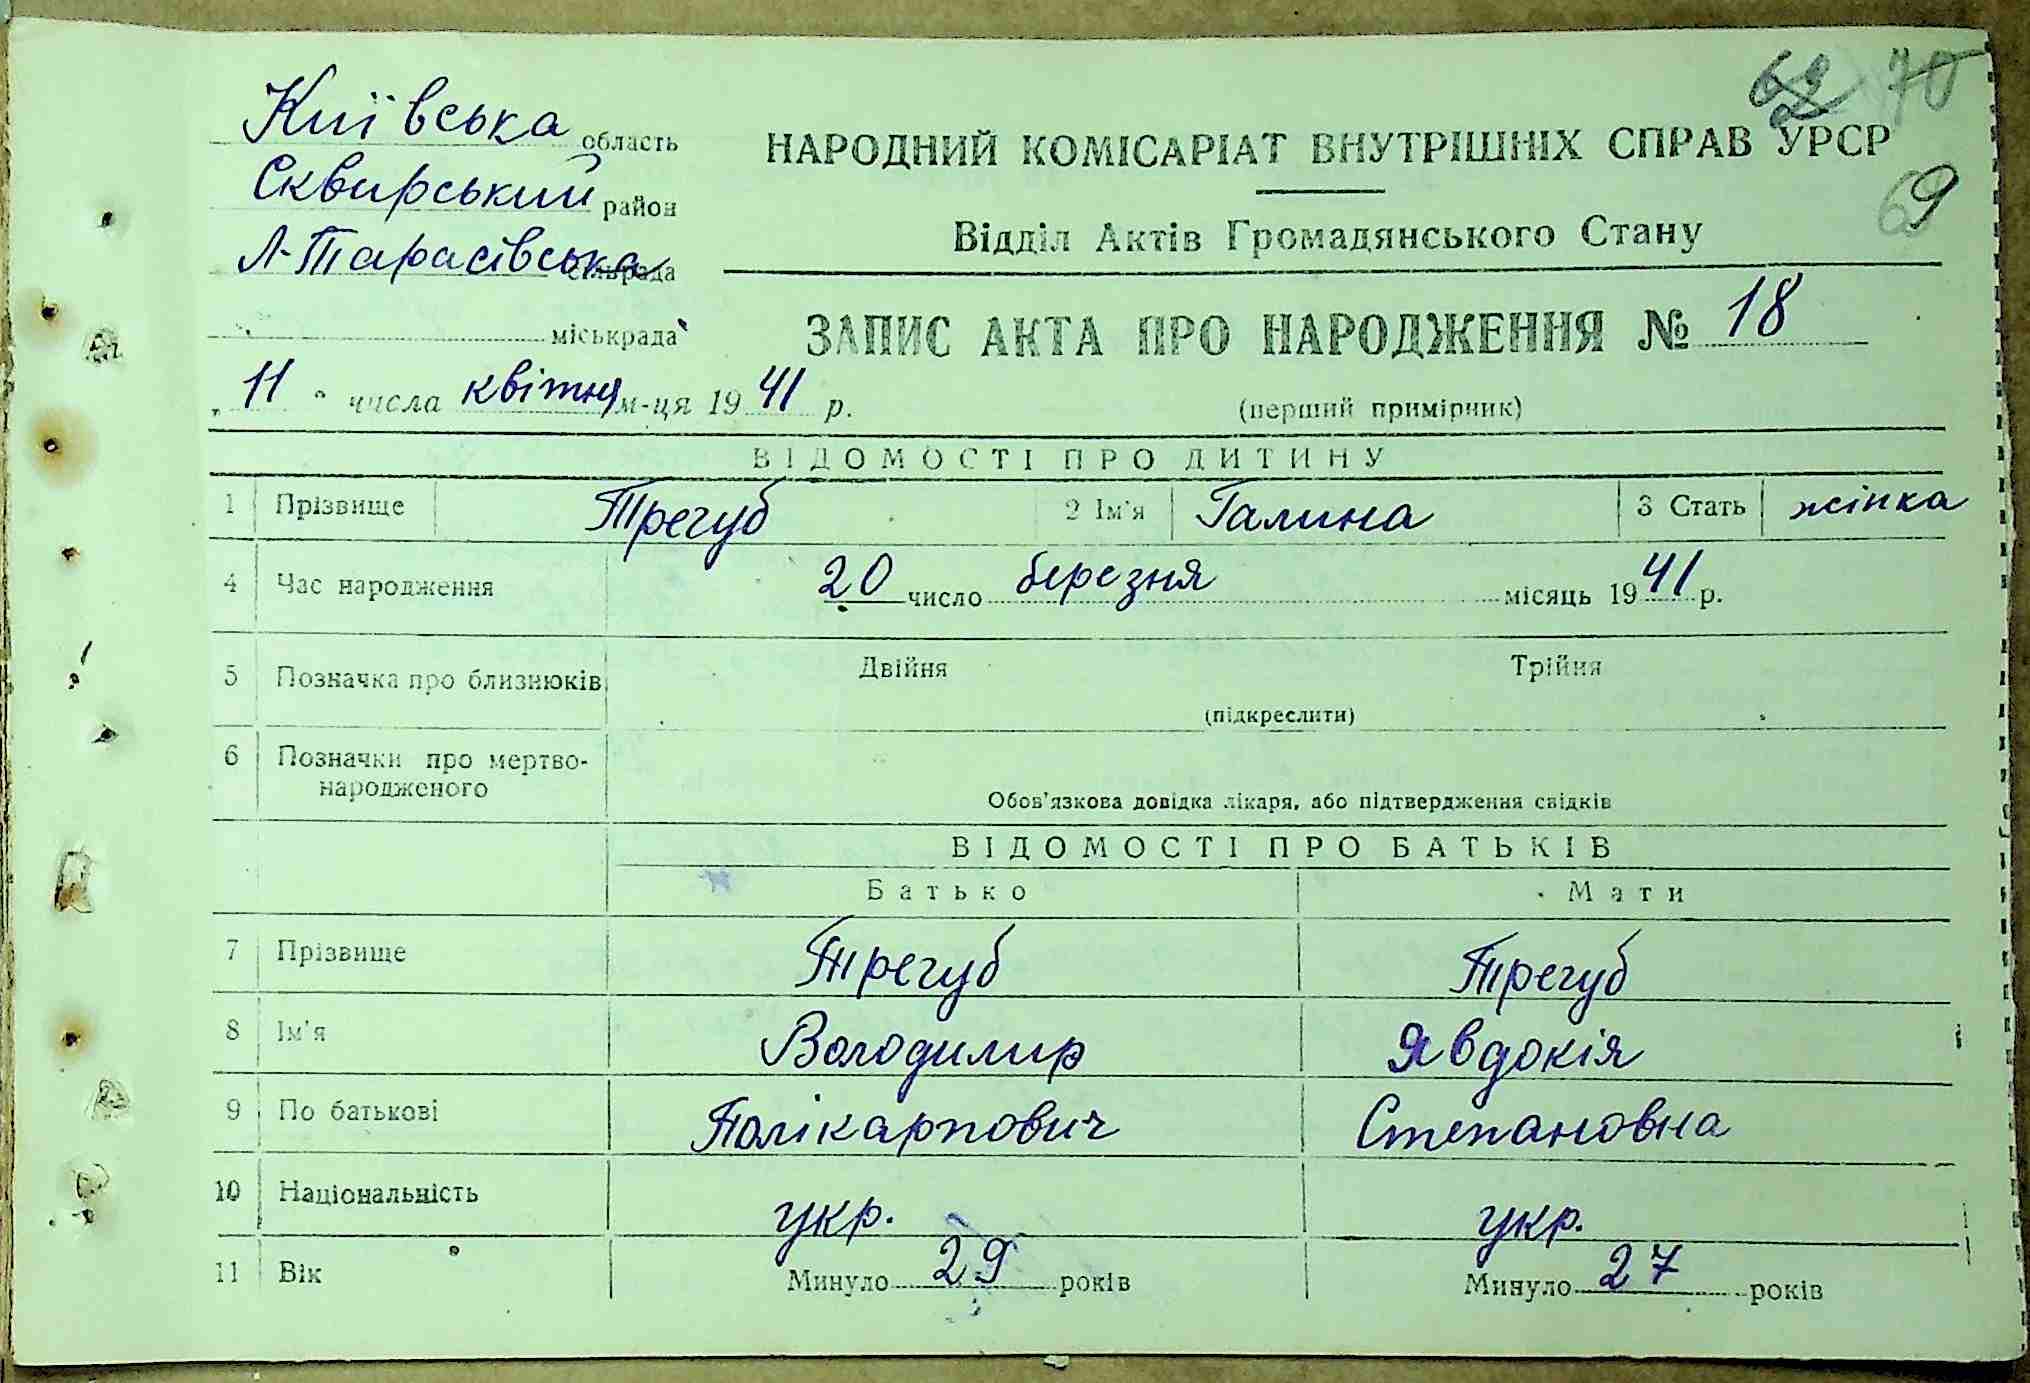 62 70
Київська область
НАРОДНИЙ КОМІСАРІАТ ВНУТРІШНІХ СПРАВ УРСР
Сквирський район
69
Відділ Актів Громадянського Стану
Л-Тарасівська сільрада
міськрада
ЗАПИС АКТА ПРО НАРОДЖЕННЯ № 18
„ 11 " числа квітня м-ця 1941 р.
(перший примірник)
ВІДОМОСТІ ПРО ДИТИНУ
1 Прізвище Трегуб 2 Ім'я Галина 3 Стать жінка
4 Час народження 20 число березня місяць 1941 р.
5 Позначка про близнюків Двійня Трійня
(підкреслити)
6 Позначки про мертво-
народженого
Обов'язкова довідка лікаря, або підтвердження свідків
ВІДОМОСТІ ПРО БАТЬКІВ
Батько Мати
7 Прізвище Трегуб Трегуб
8 Ім'я Володимир Явдокія
9 По батькові Полікарпович Степановна
10 Національність укр. укр.
11 Вік Минуло 29 років Минуло 27 років